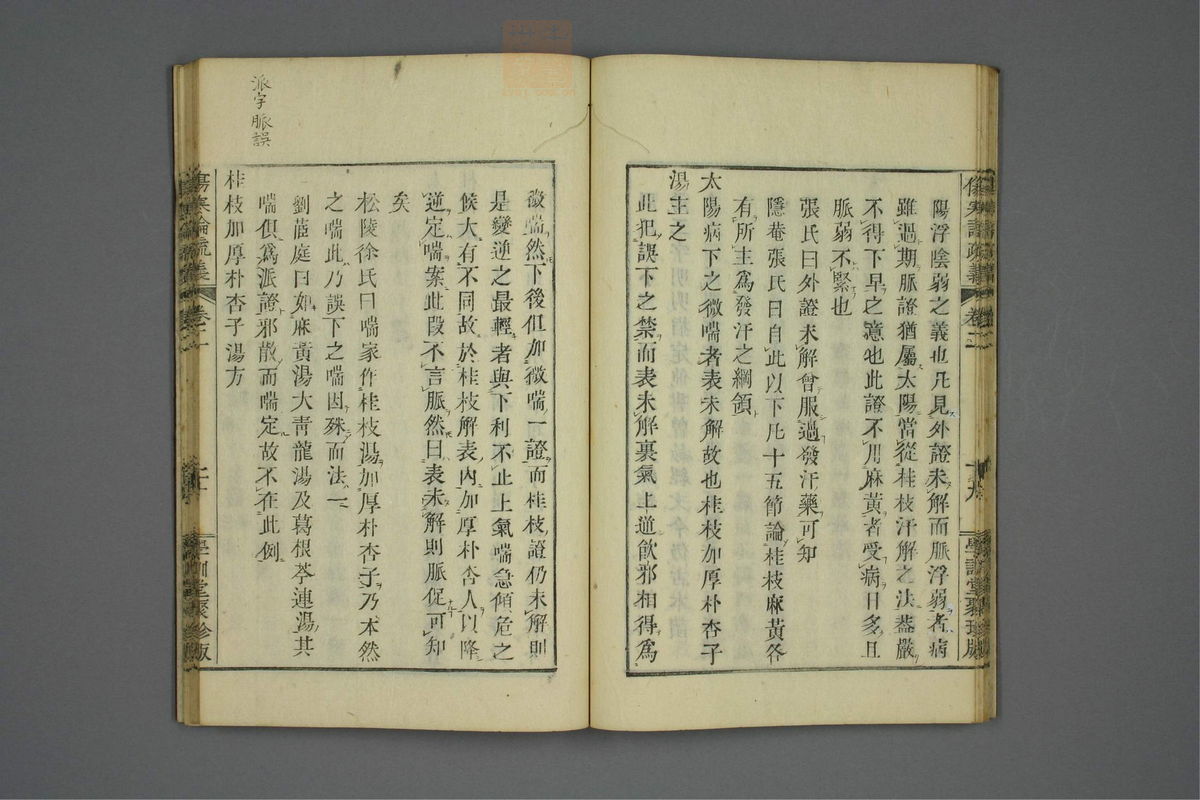 傷寒論疏義
卷二
十九
學訓堂聚珍版
陽浮陰弱之義也凡見外證未解而脈浮弱者病
雖過期脈證猶屬太陽當從桂枝汗解之法蓋嚴
不得下早之意也此證不用麻黃者受病日多且
脈弱不緊也
張氏曰外證未解曾服過發汗藥可知
隱菴張氏曰自此以下凡十五節論桂枝麻黃各
有所主爲發汗之綱領
太陽病下之微喘者表未解故也桂枝加厚朴杏子
湯主之
此犯誤下之禁而表未解裏氣上逆飮邪相得爲
微喘然下後但加微喘一證而桂枝證仍未解則
是變逆之最輕者與下利不止上氣喘急傾危之
候大有不同故於桂枝解表內加厚朴杏人以降
逆定喘案此段不言脈然曰表未解則脈促可知
矣
松陵徐氏曰喘家作桂枝湯加厚朴杏子乃本然
之喘此乃誤下之喘因殊而法一
劉茝庭曰如麻黃湯大靑龍湯及葛根芩連湯其
喘俱爲派證邪散而喘定故不在此例
桂枝加厚朴杏子湯方
傷寒論疏義
卷二
學訓堂聚珍版
派字脈誤